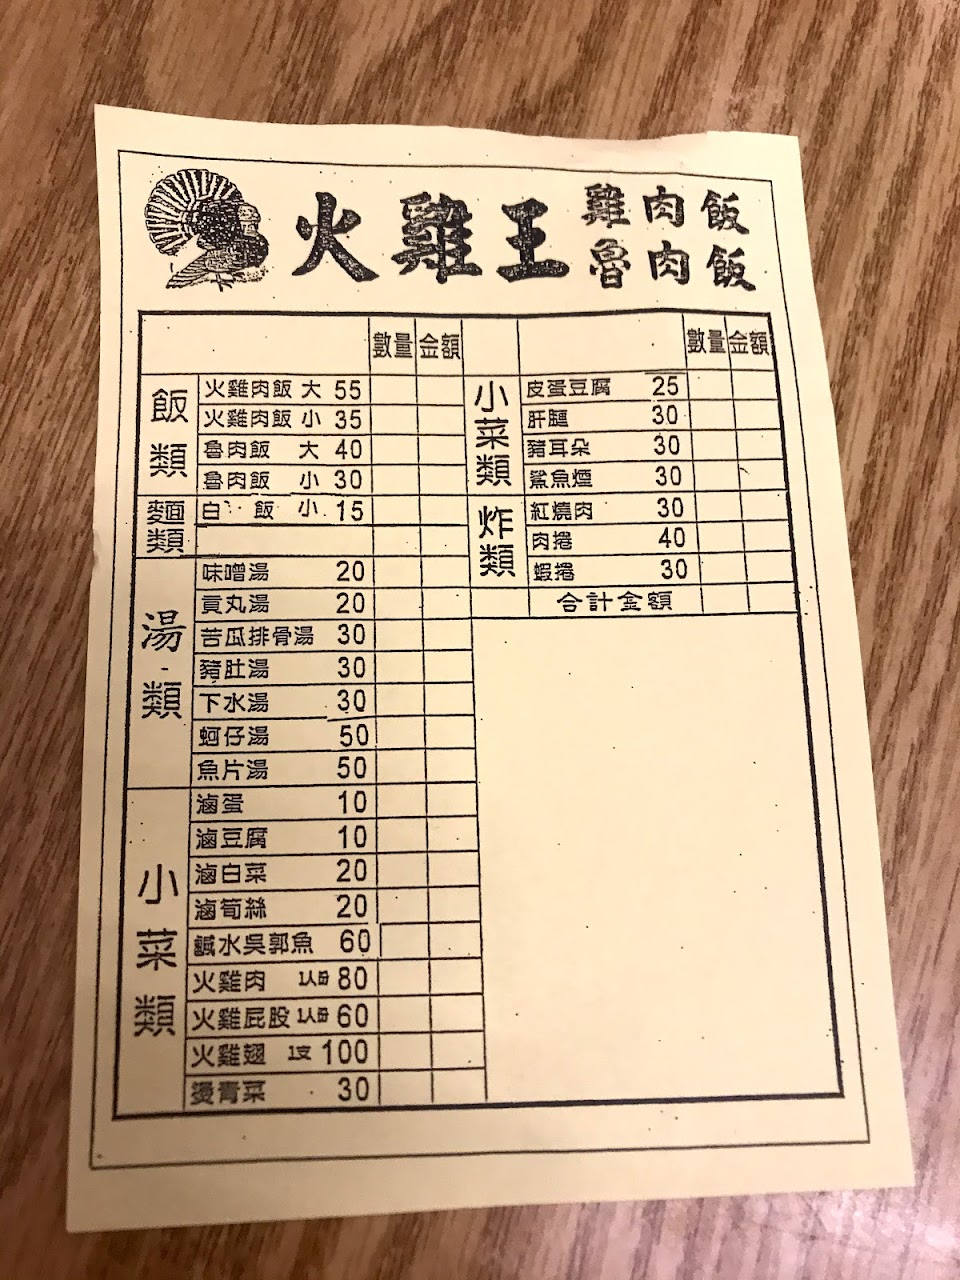 火雞王 雞肉飯
魯肉飯
數量 金額
飯類
火雞肉飯 大 55
火雞肉飯 小 35
魯肉飯 大 40
魯肉飯 小 30
麵類
白飯 小 15
湯類
味噌湯 20
貢丸湯 20
苦瓜排骨湯 30
豬肚湯 30
下水湯 30
蚵仔湯 50
魚片湯 50
小菜類
滷蛋 10
滷豆腐 10
滷白菜 20
滷筍絲 20
鹹水吳郭魚 60
火雞肉 1人份 80
火雞屁股 1人份 60
火雞翅 1支 100
燙青菜 30
數量 金額
小菜類
皮蛋豆腐 25
肝膶 30
豬耳朵 30
鯊魚煙 30
炸類
紅燒肉 30
肉捲 40
蝦捲 30
合計金額